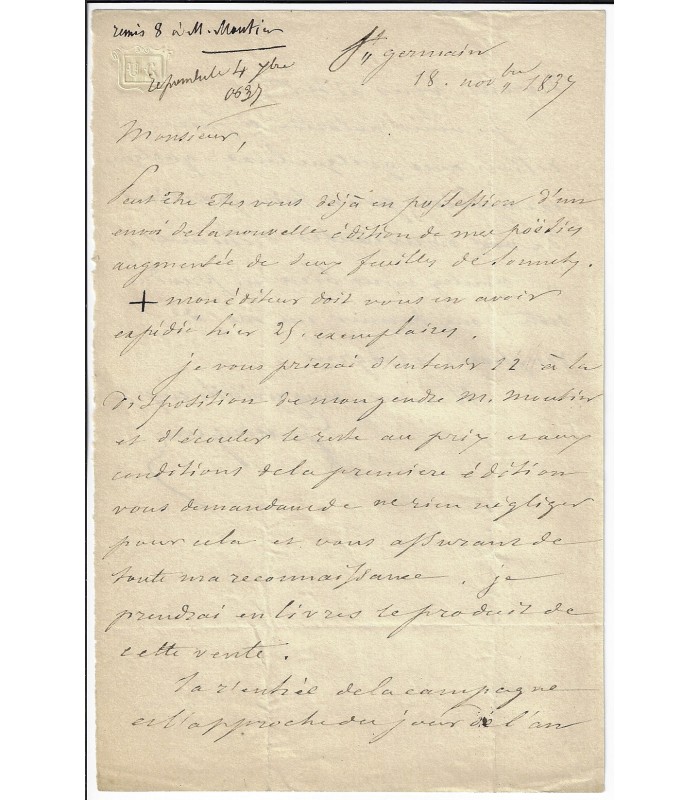 remis 8 à M. Moutier
St germain
18. novbre 1837
4 xbre
Monsieur,
Peut être êtes vous déjà en possession d'un
envoi de la nouvelle édition de mes poësies
augmentée de deux feuilles de sonnets.
+ mon éditeur doit vous en avoir
expédié hier 25. exemplaires.
je vous prierai d'en tenir 12 à la
disposition de mon gendre M. Moutier
et d'écouler le reste au prix et aux
conditions de la premiere édition
vous demandant de ne rien négliger
pour cela et vous assurant de
toute ma reconnaissance. je
prendrai en livres le produit de
cette vente.
la r'entrée de la campagne
et l'approche du jour de l'an